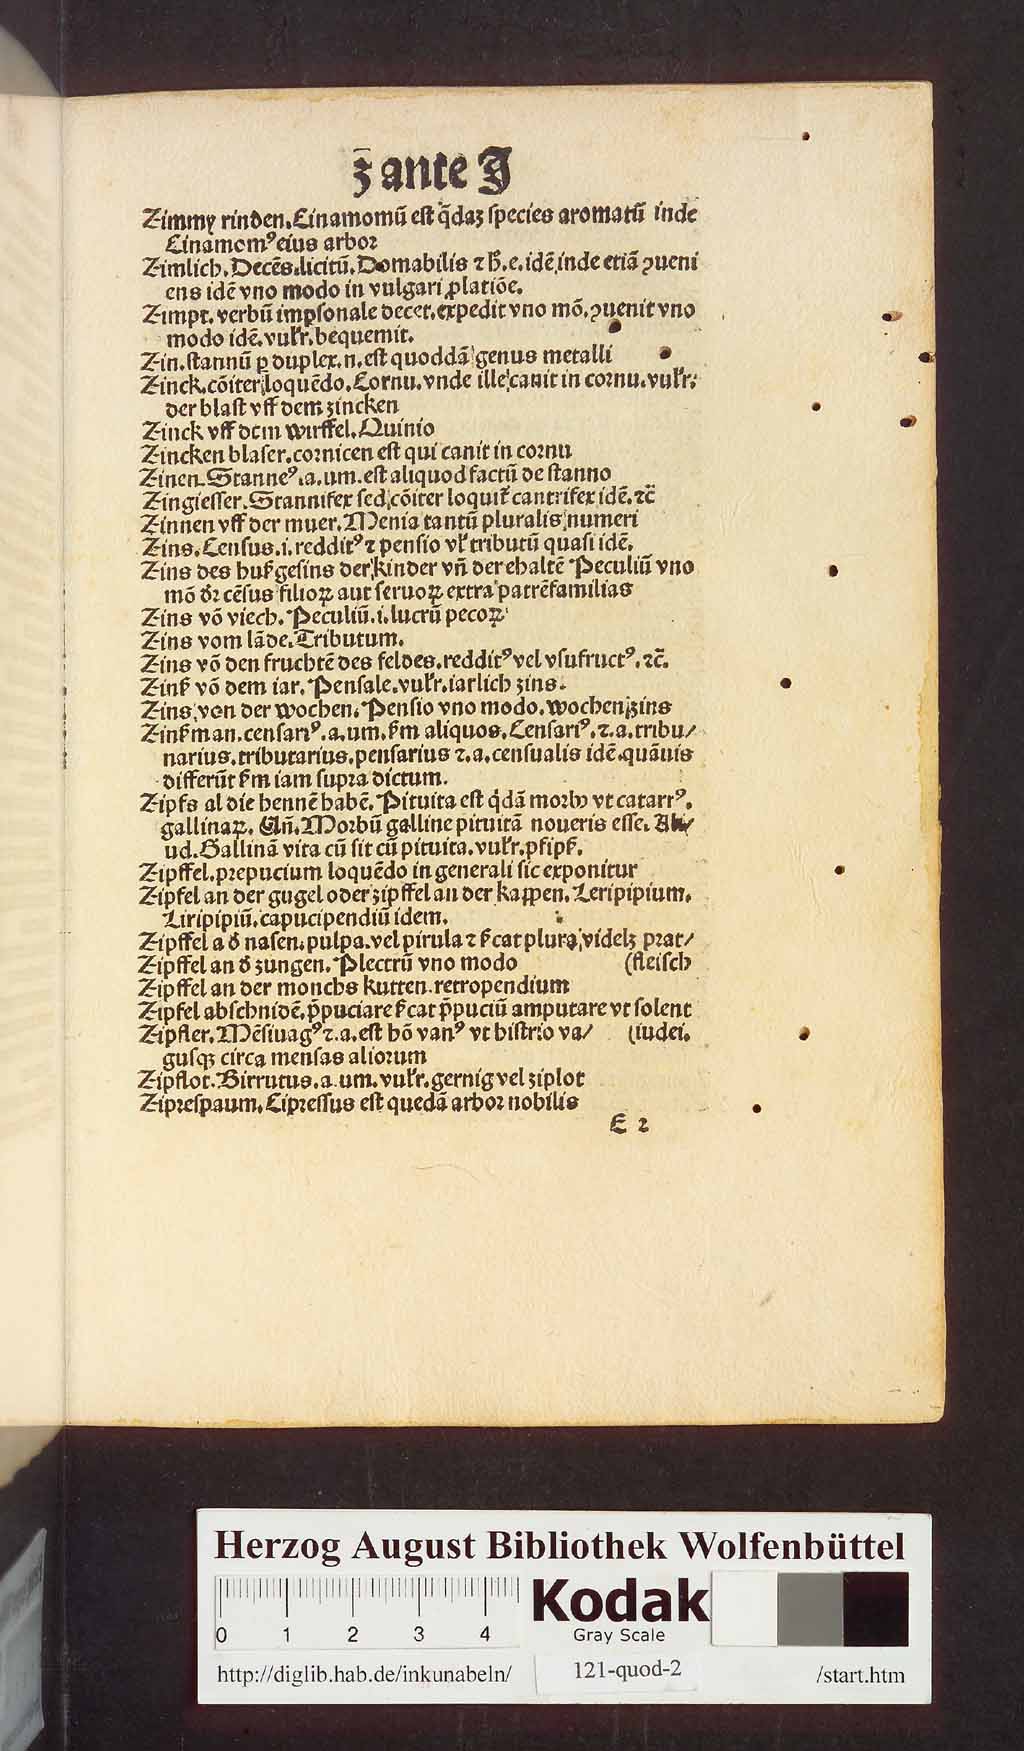 Z̄ ante J
Zimmy rinden. Cinamomū est q̄daꝫ species aromatū inde
Cinamomꝰ eius arbor
Zimlich. Decēs. licitū. Domabilis ⁊ hͦ. e. idē. inde etiā ꝯueni
ens idē vno modo in vulgari ꝓlatiōe.
Zimpt. verbū imꝑsonale decet. expedit vno mō. ꝯuenit vno
modo idē. vulr̄. bequemit.
Zin. stannū ꝑ duplex. n. est quoddā genus metalli
Zinck. cōiter loquēdo. Cornu. vnde ille canit in cornu. vulr̄.
der blast vff dem zincken
Zinck vff dem wurffel. Quinio
Zincken blaser. cornicen est qui canit in cornu
Zinen. Stanneꝰ. a. um. est aliquod factū de stanno
Zingiesser. Stannifex sed cōiter loquit̄ cantrifex idē. ⁊c̄
Zinnen vff der muer. Menia tantū pluralis numeri
Zins. Census. i. redditꝰ ⁊ pensio vl̄ tributū quasi idē.
Zins des hußgesins der kinder vn̄ der ehaltē Peculiū vno
mō dr̄ cēsus filioꝝ aut seruoꝝ extra patrēfamilias
Zins vō viech. Peculiū. i. lucrū pecoꝝ
Zins vom lāde. Tributum.
Zins vō den fruchtē des feldes. redditꝰ vel vsufructꝰ. ⁊c̄.
Zinß vō dem iar. Pensale. vulr̄. iarlich zins.
Zins von der wochen. Pensio vno modo. wochen zins
Zinßman. censariꝰ. a. um. ẜm aliquos. Censariꝰ. ⁊. a. tribu/
narius. tributarius. pensarius ⁊. a. censualis idē. quāuis
differūt ẜm iam supra dictum.
Zipfs al die hennē habē. Pituita est q̇dā morbꝰ vt catarrꝰ.
gallinaꝝ. Un̄. Morbū galline pituitā noueris esse. Ali/
ud. Gallinā vita cū sit cū pituita. vulr̄. pfipß.
Zipffel. prepucium loquēdo in generali sic exponitur
Zipfel an der gugel oder zipffel an der kappen. Leripipium.
Liripipiū. capucipendiū idem.
Zipffel a d̄ nasen. pulpa. vel pirula ⁊ ẜcat plura videlꝫ prat/
Zipffel an d̄ zungen. Plectrū vno modo (fleisch
Zipffel an der monchs kutten. retropendium
Zipfel abschnidē. p̄puciare ẜcat p̄puciū amputare vt solent
Zipfler. Mēsiuagꝰ ⁊. a. est hō vanꝰ vt histrio va/ (iudei.
gusqꝫ circa mensas aliorum
Zipflot. Birrutus. a. um. vulr̄. gernig vel ziplot
Ziprespaum. Cipressus est quedā arbor nobilis
E 2
Herzog August Bibliothek Wolfenbüttel
0 1 2 3 4
Kodak
Gray Scale
http://diglib.hab.de/inkunabeln/
121-quod-2
/start.htm